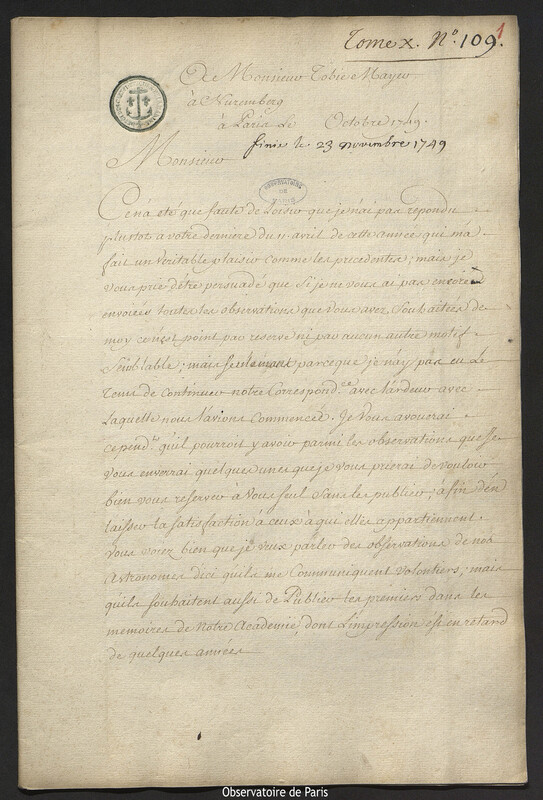 Tome X. No. 109.
1
De Monsieur Tobie Mayer
à Nuremberg
à Paris Le Octobre 1749.
finie le 23 novembre 1749
Monsieur
OBSERVATOIRE
DE
PARIS
Ce n'a eté que faute de Loisir que je n'ai pas repondu
plustot a votre derniere du 11 avril de cette année qui m'a
fait un veritable plaisir comme les precedentes; mais je
vous prie d'être persuadé que si je ne vous ai pas encore
envoiées toutes les observations que vous avez souhaitées de
moy ce n'est point par reserve ni par aucun autre motif
semblable; mais seulement parceque je n'ay pas eu Le
tems de continuer notre Correspond.ce avec l'ardeur avec
Laquelle nous l'avions commencée. Je vous avouerai
cepend.t qu'il pourroit y avoir parmi les observations que je
vous enverrai quelques unes que je vous prierai de vouloir
bien vous reserver à vous seul sans les publier; afin d'en
laisser la satisfaction à ceux à qui elles appartiennent.
vous voiez bien que je veux parler des observations de nos
astronomes d'ici qu'ils me Communiquent volontiers; mais
qu'ils souhaitent aussi de Publier les premiers dans les
memoires de Notre Academie, dont l'impression est en retard
de quelques années
Observatoire de Paris